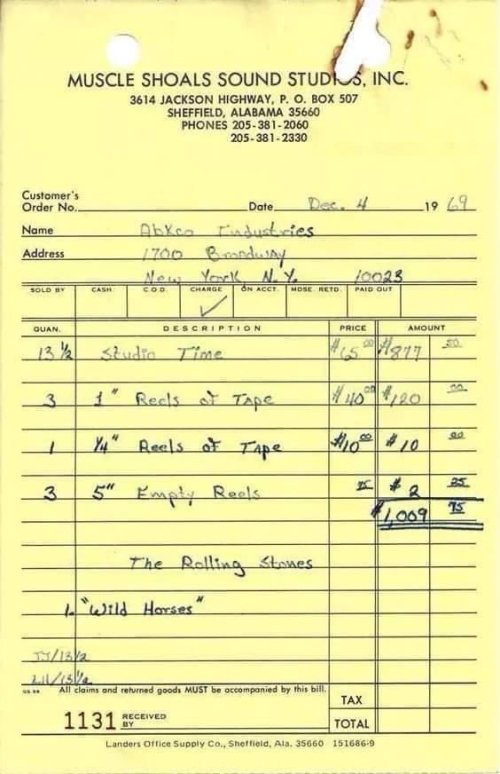 MUSCLE SHOALS SOUND STUDIOS, INC.
3614 JACKSON HIGHWAY, P. O. BOX 507
SHEFFIELD, ALABAMA 35660
PHONES 205-381-2060
205-381-2330
Customer's
Order No. Date Dec. 4 19 69
Name Abkco Industries
Address 1700 Broadway
New York N.Y. 10023
SOLD BY CASH C.O.D. CHARGE ON ACCT. MDSE. RETD. PAID OUT
✓
QUAN. DESCRIPTION PRICE AMOUNT
13 1/2 Studio Time $65 00 $877 50
3 1" Reels of Tape $40 00 $120 00
1 1/4" Reels of Tape $10 00 $10 00
3 5" Empty Reels 75 $2 25
$1,009 75
The Rolling Stones
1. "Wild Horses"
JJ/13 1/2
/13 1/2
All claims and returned goods MUST be accompanied by this bill.
1131 RECEIVED BY
TAX
TOTAL
Landers Office Supply Co., Sheffield, Ala. 35660 151686-9